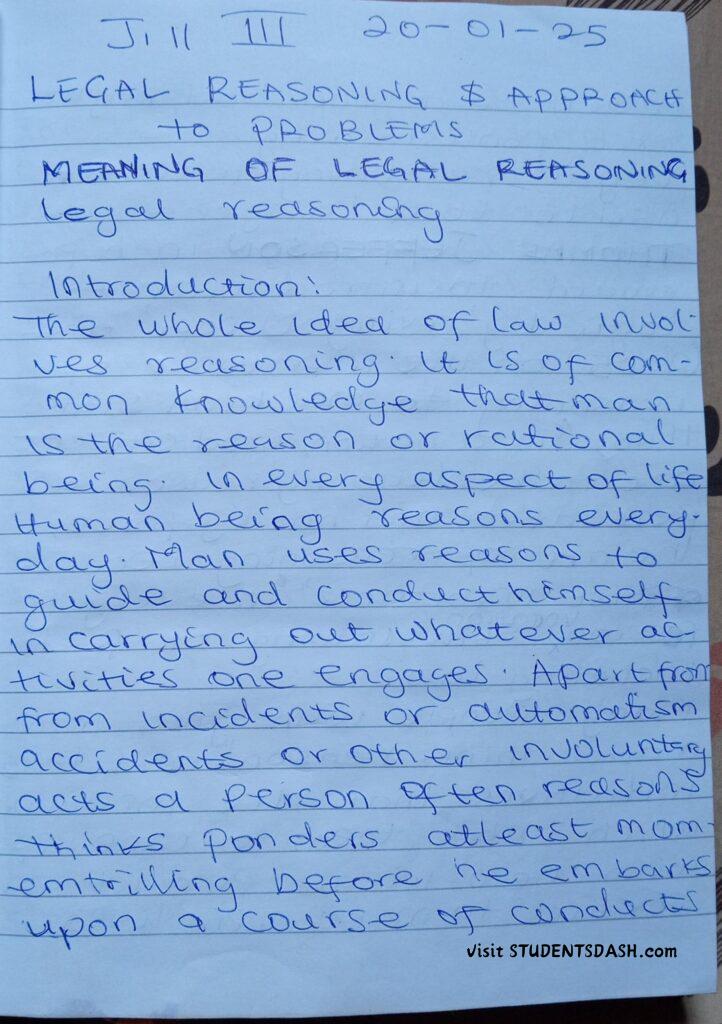 Jill III 20-01-25
LEGAL REASONING $ APPROACH
to PROBLEMS
MEANING OF LEGAL REASONING
Legal reasoning
Introduction:
The whole idea of law invol-
ves reasoning. It is of com-
mon knowledge that man
is the reason or rational
being. In every aspect of life
Human being reasons every-
day. Man uses reasons to
guide and conduct himself
in carrying out whatever ac-
tivities one engages. Apart from
from incidents or automatism
accidents or other involuntary
acts a person often reasons
thinks ponders atleast mom-
emtrilling before he embarks
upon a course of conducts
visit STUDENTSDASH.com